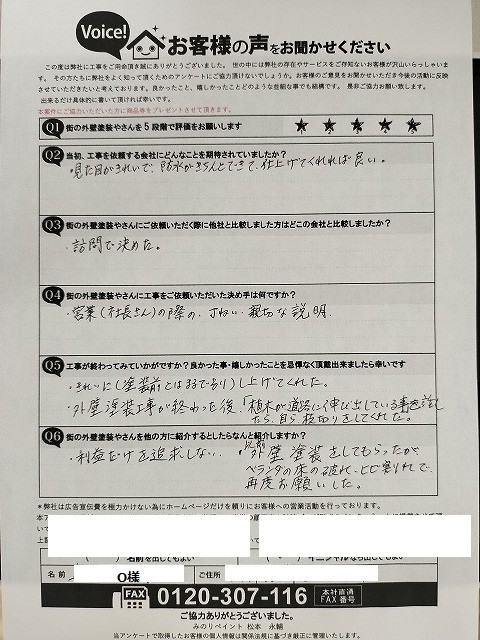 Voice!
お客様の声をお聞かせください
この度は弊社に工事をご用命頂き誠にありがとうございました。 世の中には弊社の存在やサービスをご存知ないお客様が沢山いらっしゃいま
す。 その方たちに弊社をよく知って頂くためのアンケートにご協力頂けないでしょうか。お客様のご意見をお聞かせいただき今後の活動に反映
させていただきたいと考えております。良かったこと、嬉しかったことどのような些細な事でも結構です。 是非ご協力お願い致します。
出来るだけ具体的に書いて頂ければ幸いです。
本案件にご協力いただいた方に商品券をプレゼントさせて頂きます。
Q1 街の外壁塗装やさんを5段階で評価をお願いします ★ ★ ★ ★ ★
Q2 当初、工事を依頼する会社にどんなことを期待されていましたか?
・見た目がきれいで、防水がきちんとできて、仕上げてくれれば良い。
Q3 街の外壁塗装やさんにご依頼いただく際に他社と比較しました方はどこの会社と比較しましたか?
・訪問で決めた。
Q4 街の外壁塗装やさんに工事をご依頼いただいた決め手は何ですか?
・営業(社長さん)の際の、丁ねい、親切な説明
Q5 工事が終わってみていかがですか?良かった事・嬉しかったことを忌憚なく頂戴出来ましたら幸いです
・きれいに(塗装前とはまるでちがう)し上げてくれた。
・外壁塗装工事が終わった後、「植木が道路に伸び出している事を話し
たら、自ら枝切りをしてくれた。
Q6 街の外壁塗装やさんを他の方に紹介するとしたらなんと紹介しますか?
・利益だけを追求しない。
・以前外壁塗装をしてもらったが
ベランダの床の破れ、ヒビ割れで、
再度お願いした。
*弊社は広告宣伝費を極力かけない為にホームページだけを頼りにお客様への営業活動を行っております。
名前を出してもよい
イニシャルなら出してもよい
名前 O様 ご住所
FAX 0120-307-116 本社直通 FAX番号
ご協力ありがとうございました。
みのりペイント 松本 永輔
当アンケートで取得したお客様の個人情報は関係法規に基づき厳正に管理いたします。